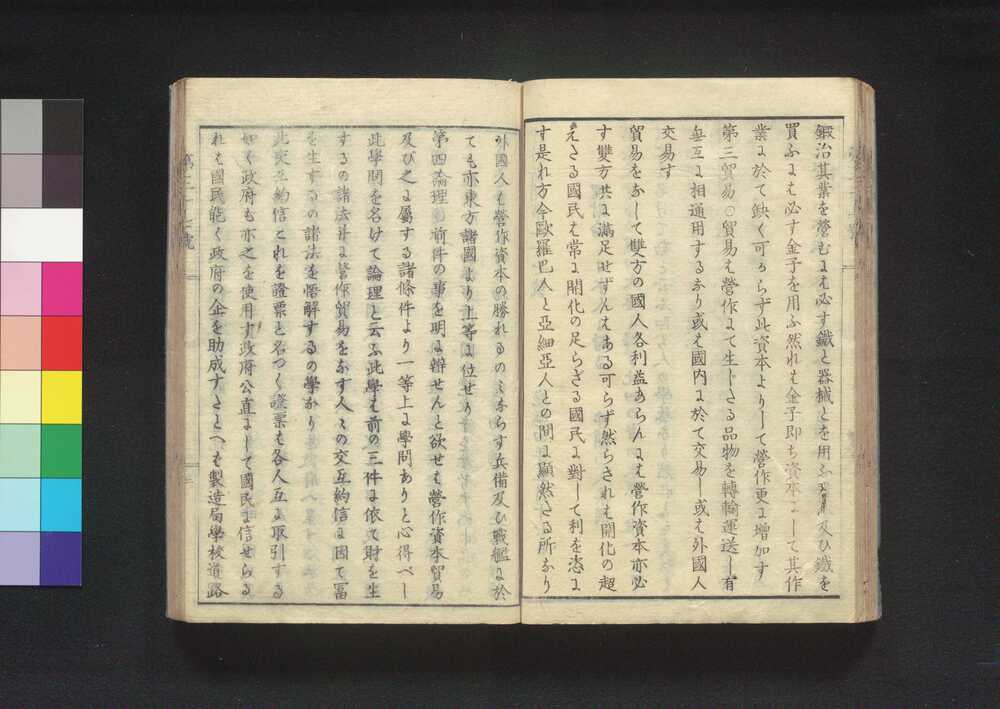 鍛冶其業を營むには必す鐵と器械とを用ふ 及ひ鐵を
買ふには必す金子を用ふ然れは金子即ち資本にして其作
業に於て缺く可らず此資本よりして營作更に增加す
第三貿易○貿易は營作にて生したる品物を轉輸運送し有
無互に相通用するなり或は國內に於て交易し或は外國人と
交易す
貿易をなして雙方の國人各利益あらんには營作資本亦必
す雙方共に滿足せずんはある可らず然らされは開化の超
えたる國民は常に開化の足らざる國民に對して利を恣に
す是れ方今歐羅巴人と亞細亞人との間に顯然たる所なり
外國人は營作資本の勝れるのみならす兵備及ひ戰艦に於
ても亦東方諸國より上等に位せり
第四論理○前件の事を明に辨せんと欲せは營作資本貿易
及び之に屬する諸條件より一等上に學問ありと心得べし
此學問を名けて論理と云ふ此學は前の三件に依て財を生
するの諸法幷に營作貿易をなす人々の交互約信に因て富
を生するの諸法を悟解するの學なり
此交互約信これを證票と名つく證票は各人互に取引する
如く政府も亦之を使用す政府公直にして國民に信せらる
れは國民能く政府の企を助成すたとへは製造局學校道路
第二十七號